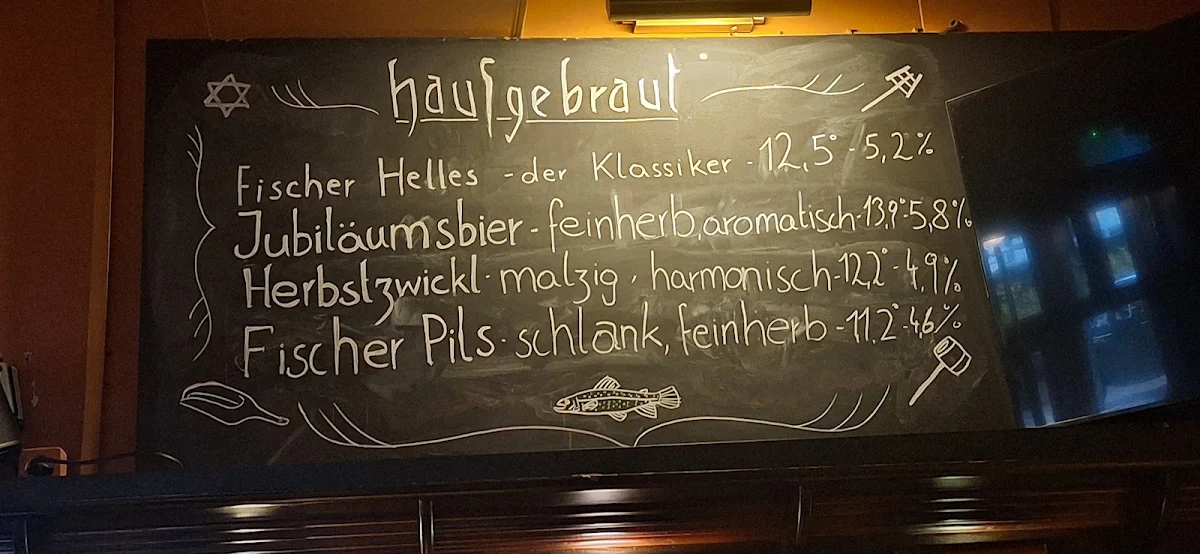 hausgebraut
Fischer Helles - der Klassiker - 12,5° - 5,2%
Jubiläumsbier - feinherb, aromatisch - 13,9° - 5,8%
Herbstzwickl - malzig, harmonisch - 12,2° - 4,9%
Fischer Pils - schlank, feinherb - 11,2° - 4,6%